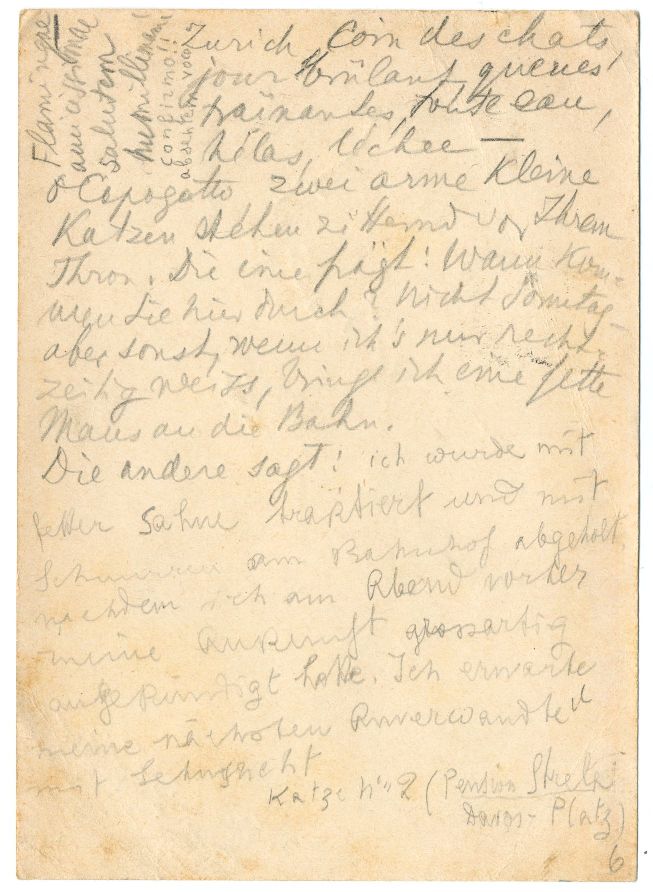 Zurich, Coin des chats,
jour brûlant, queues
traînantes, toute eau,
hélas, léchée —
O Capogatto, zwei arme kleine
Katzen stehen zitternd vor Ihrem
Thron. Die eine frägt: Wann kom-
men Sie hier durch? Nicht Sonntag–
aber sonst, wenn ich's nur recht-
zeitig weiss, bringe ich eine fette
Maus an die Bahn.
Die andere sagt: ich wurde mit
fetter Sahne traktiert und mit
Schnurren am Bahnhof abgeholt
nachdem ich am Abend vorher
meine Ankunft grossartig
angekündigt hatte. Ich erwarte
meine nächsten Anverwandten
mit Sehnsucht
Katze No 2 (Pension Strela
Davos-Platz)
6
amicissimae
salutem
confirmo!!